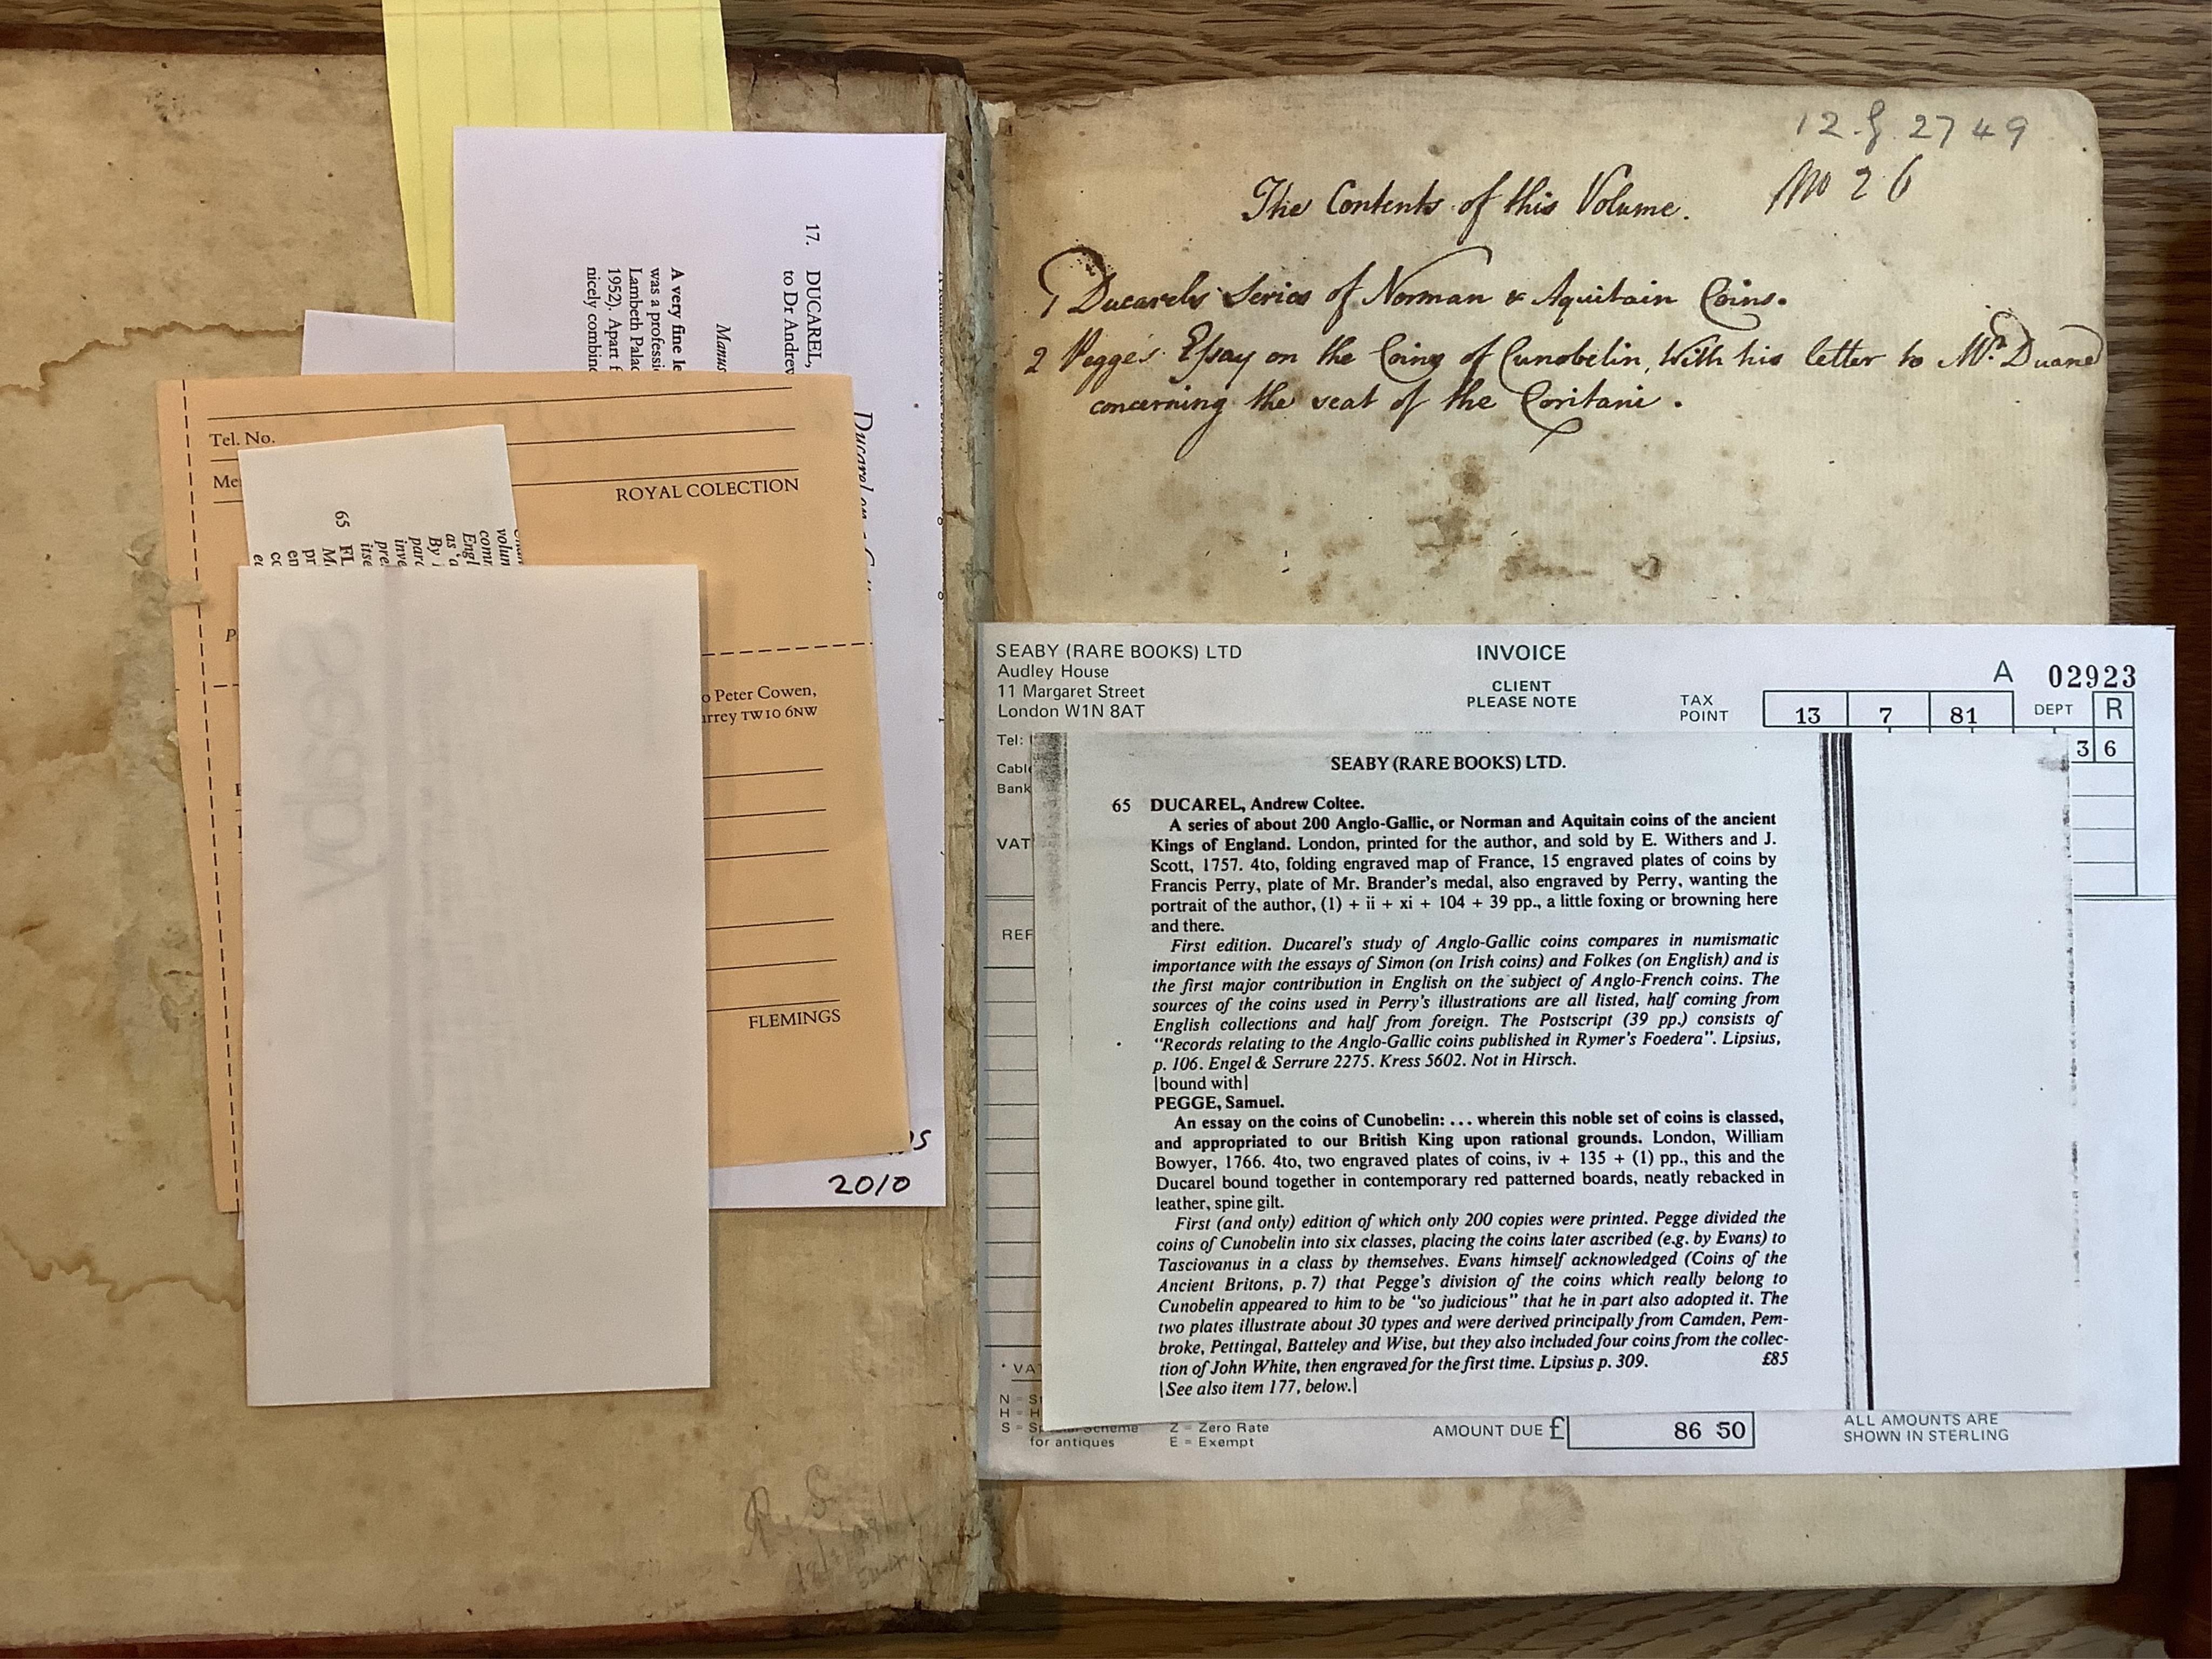 12.g.2749
No 26
The Contents of this Volume.
1 Ducarels Series of Norman & Aquitain Coins.
2 Pegge's Essay on the Coins of Cunobelin, With his letter to Mr. Duane
concerning the seat of the Coritani.
17. DUCAREL,
to Dr Andrew
Manus
A very fine le
was a professi
Lambeth Palac
1952). Apart f
nicely combin
2010
Tel. No.
Me
ROYAL COLECTION
o Peter Cowen,
urrey TW10 6NW
FLEMINGS
volun
com
Engl
as 'a
By
parc
inve
pre
itse
65 FL
M
pr
en
co
SEABY (RARE BOOKS) LTD
Audley House
11 Margaret Street
London W1N 8AT
INVOICE
CLIENT
PLEASE NOTE
A 02923
TAX
POINT
13 7 81
DEPT R
3 6
Tel:
Cabl
Bank
VAT
REF
SEABY (RARE BOOKS) LTD.
65 DUCAREL, Andrew Coltee.
A series of about 200 Anglo-Gallic, or Norman and Aquitain coins of the ancient
Kings of England. London, printed for the author, and sold by E. Withers and J.
Scott, 1757. 4to, folding engraved map of France, 15 engraved plates of coins by
Francis Perry, plate of Mr. Brander's medal, also engraved by Perry, wanting the
portrait of the author, (1) + ii + xi + 104 + 39 pp., a little foxing or browning here
and there.
First edition. Ducarel's study of Anglo-Gallic coins compares in numismatic
importance with the essays of Simon (on Irish coins) and Folkes (on English) and is
the first major contribution in English on the subject of Anglo-French coins. The
sources of the coins used in Perry's illustrations are all listed, half coming from
English collections and half from foreign. The Postscript (39 pp.) consists of
"Records relating to the Anglo-Gallic coins published in Rymer's Foedera". Lipsius,
p. 106. Engel & Serrure 2275. Kress 5602. Not in Hirsch.
[bound with]
PEGGE, Samuel.
An essay on the coins of Cunobelin: ... wherein this noble set of coins is classed,
and appropriated to our British King upon rational grounds. London, William
Bowyer, 1766. 4to, two engraved plates of coins, iv + 135 + (1) pp., this and the
Ducarel bound together in contemporary red patterned boards, neatly rebacked in
leather, spine gilt.
First (and only) edition of which only 200 copies were printed. Pegge divided the
coins of Cunobelin into six classes, placing the coins later ascribed (e.g. by Evans) to
Tasciovanus in a class by themselves. Evans himself acknowledged (Coins of the
Ancient Britons, p. 7) that Pegge's division of the coins which really belong to
Cunobelin appeared to him to be "so judicious" that he in part also adopted it. The
two plates illustrate about 30 types and were derived principally from Camden, Pem-
broke, Pettingal, Batteley and Wise, but they also included four coins from the collec-
tion of John White, then engraved for the first time. Lipsius p. 309. £85
[See also item 177, below.]
* VA
N = S
H = H
S = Special Scheme
for antiques
Z = Zero Rate
E = Exempt
AMOUNT DUE £ 86 50
ALL AMOUNTS ARE
SHOWN IN STERLING